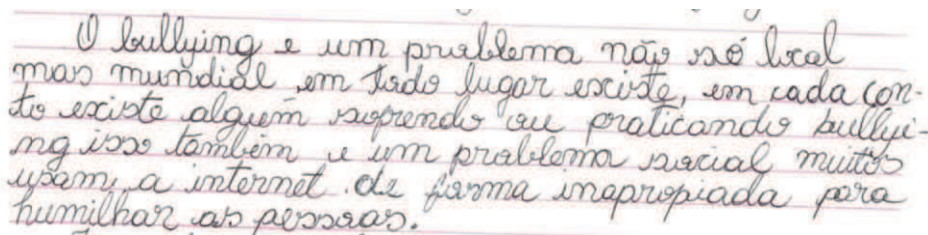 O bullying e um problema não só local
mas mundial em todo lugar existe, em cada con-
to existe alguém soprendo ou praticando bullyi-
ng isso também e um problema social muitos
usam, a internet de forma inapropiada para
humilhar as pessoas.